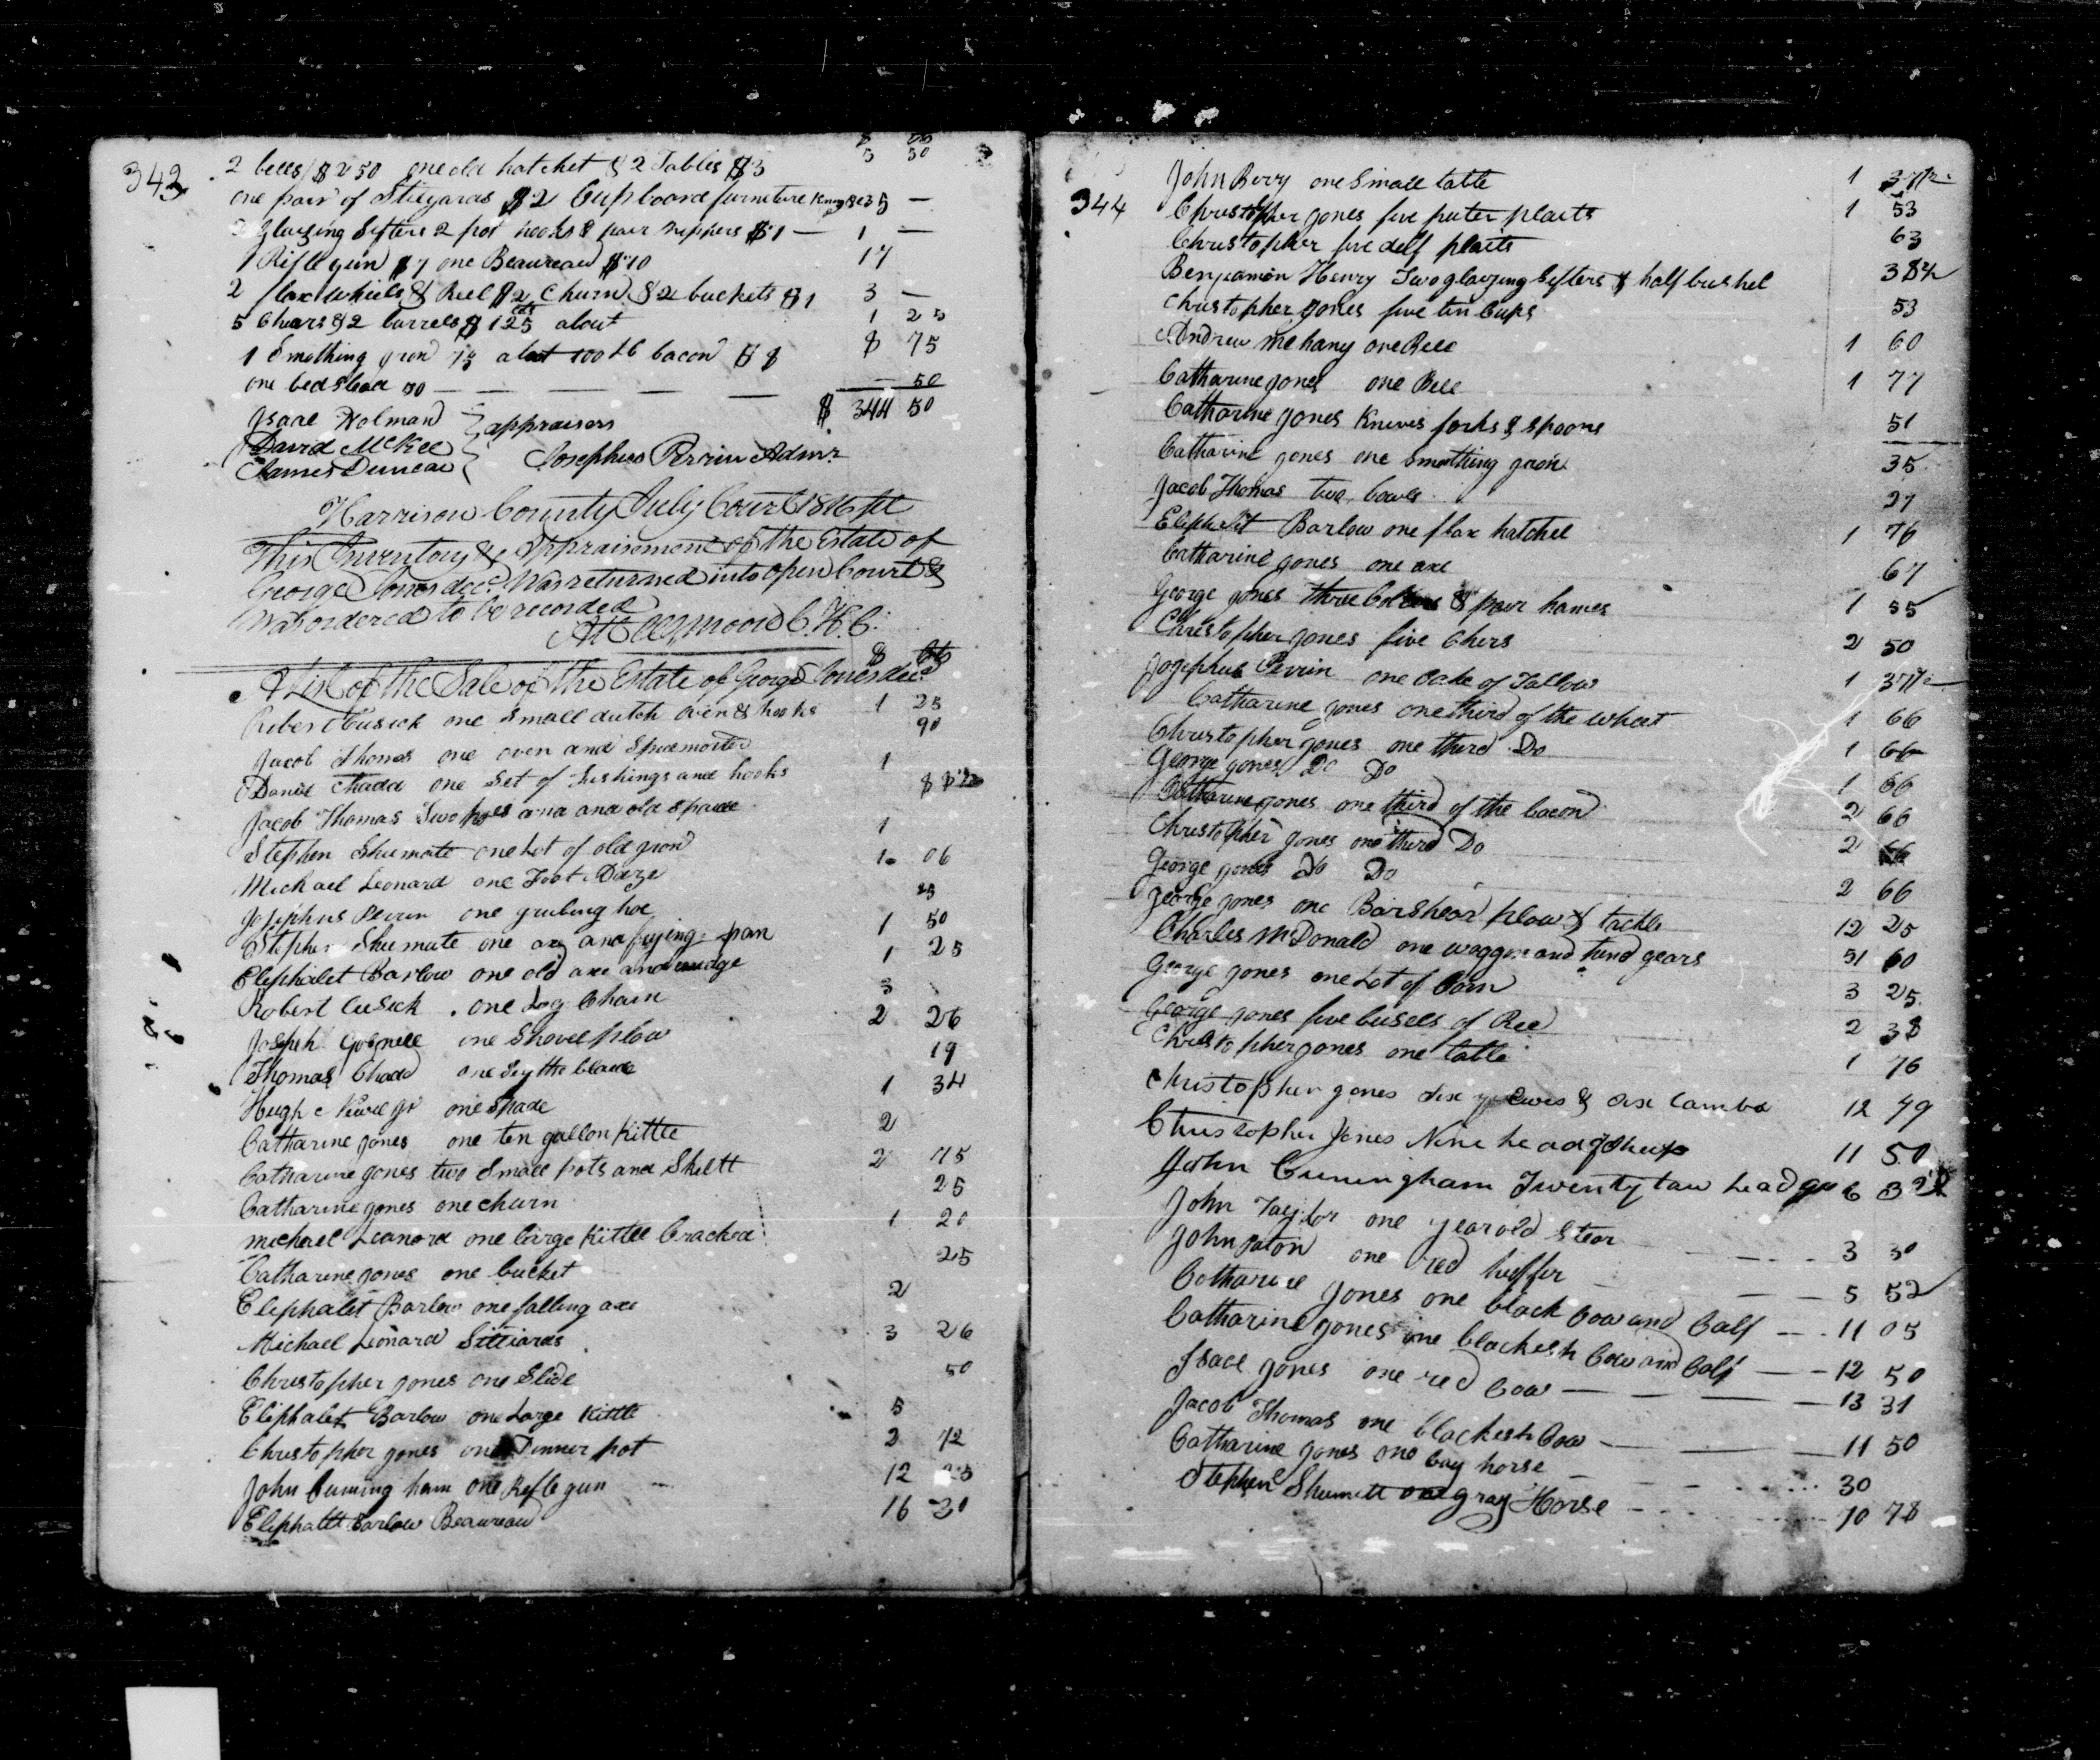 343
$ cts
2 bells $2 50 one old hatchet & 2 Tables $3 5 50
one pair of Stilyards $2 Cupboard furniture $3 5 —
2 glaizing Sifters 2 pot hooks & pair nippers $1 — 1 —
1 Rifle gun $7 one Beaureau $10 17
2 flax wheels & Reel $2 Churn & 2 buckets $1 3 —
5 Chears & 2 barrels $1 25 cts about 1 25
1 Smothing gron 75 about 100 Lb bacon $8 8 75
one bedstead 50 — — — — — 50
$ 344 50
Isaac Holman
David McKee } appraisers
James Duncan Josephus Perrin Admr.
Harrison County July Court 1816 Sct
This Inventory & Appraisement of the Estate of
George Jones decd. Was returned into open Court &
Was ordered to be recorded
Att Moore C.H.C.
$ Cts
A List of the Sale of the Estate of George Jones decd
Robert Cusick one Small dutch oven & hooks 1 25
Jacob Thomas one oven and 90
Daniel Chadd one Set of and hooks 1
Jacob Thomas Two hoes and an old Spade
Stephen Shumate one Lot of old gron 1
Michael Leonard one Foot Adze 1 06
Josephus Perrin one grubing hoe 25
Stephen Shumate one ax and frying pan 1 50
Eliphalet Barlow one old axe and wedge 1 25
Robert Cusick one Log Chain 3
Joseph Gosnell one Shovel plow 2 26
Thomas Chadd one Sythe blade 19
Hugh Newel Jr one Spade 1 34
Catharine Jones one ten gallon Kittle 2
Catharine Jones two Small pots and Skiltt 2 75
Catharine Jones one churn 25
Micheal Leanord one large Kittle Cracked 1 20
Catharine Jones one bucket 25
Eliphalet Barlow one falling axe 2
Michael Leonard Stiliards 3 26
Christopher Jones one Slide 50
Eliphalet Barlow one Large Kittle 5
Christopher Jones one Dinner pot 2 72
John Cuming ham one Rifle gun — 12 25
Eliphalett Barlow Beaureau 16 30
344
John Berry one Small table 1 37 1/2
Christopher Jones five puter plaits 1 53
Christopher five delf plaits 63
Benjamin Henry Two glaizing Sifters & half bushel 38 1/2
Christopher Jones five tin Cups 53
Andrew Mehany one Bell 1 60
Catharine Jones one Bell 1 77
Catharine Jones Knives forks & Spoons 51
Catharine Jones one Smothing gron 35
Jacob Thomas two bowls 27
Eliphalet Barlow one flax hatchel 1 76
Catharine Jones one axe 67
George Jones three & pair hames 1 55
Christopher Jones five Chers 2 50
Josephus Perrin one Cake of Tallow 1 37 1/2
Catharine Jones one third of the wheat 1 66
Christopher Jones one third Do 1 66
George Jones Do Do 1 66
Catharine Jones one third of the bacon 2 66
Christopher Jones one third Do 2 66
George Jones Do Do 2 66
George Jones one Barshear plow & tackle 12 25
Charles McDonald one waggon and hind gears 51 60
George Jones one Lot of Corn 3 25
George Jones five busels of Rie 2 38
Christopher Jones one table 1 76
Christopher Jones six Ewes & six Lambs 12 49
Christopher Jones Nine head of Sheep 11 50
John Cuningham Twenty two head 6 
John Taylor one year old Stear 3 30
John Paton one red heffer — 5 52
Catharine Jones one black Cow and Calf — 11 05
Catharine Jones one blackesh Cow and Calf — 12 50
Isaac Jones one red Cow — 13 31
Jacob Thomas one blackesh Cow — 11 50
Catharine Jones one bay horse — 30
Stephen Shumett one gray Horse 10 78